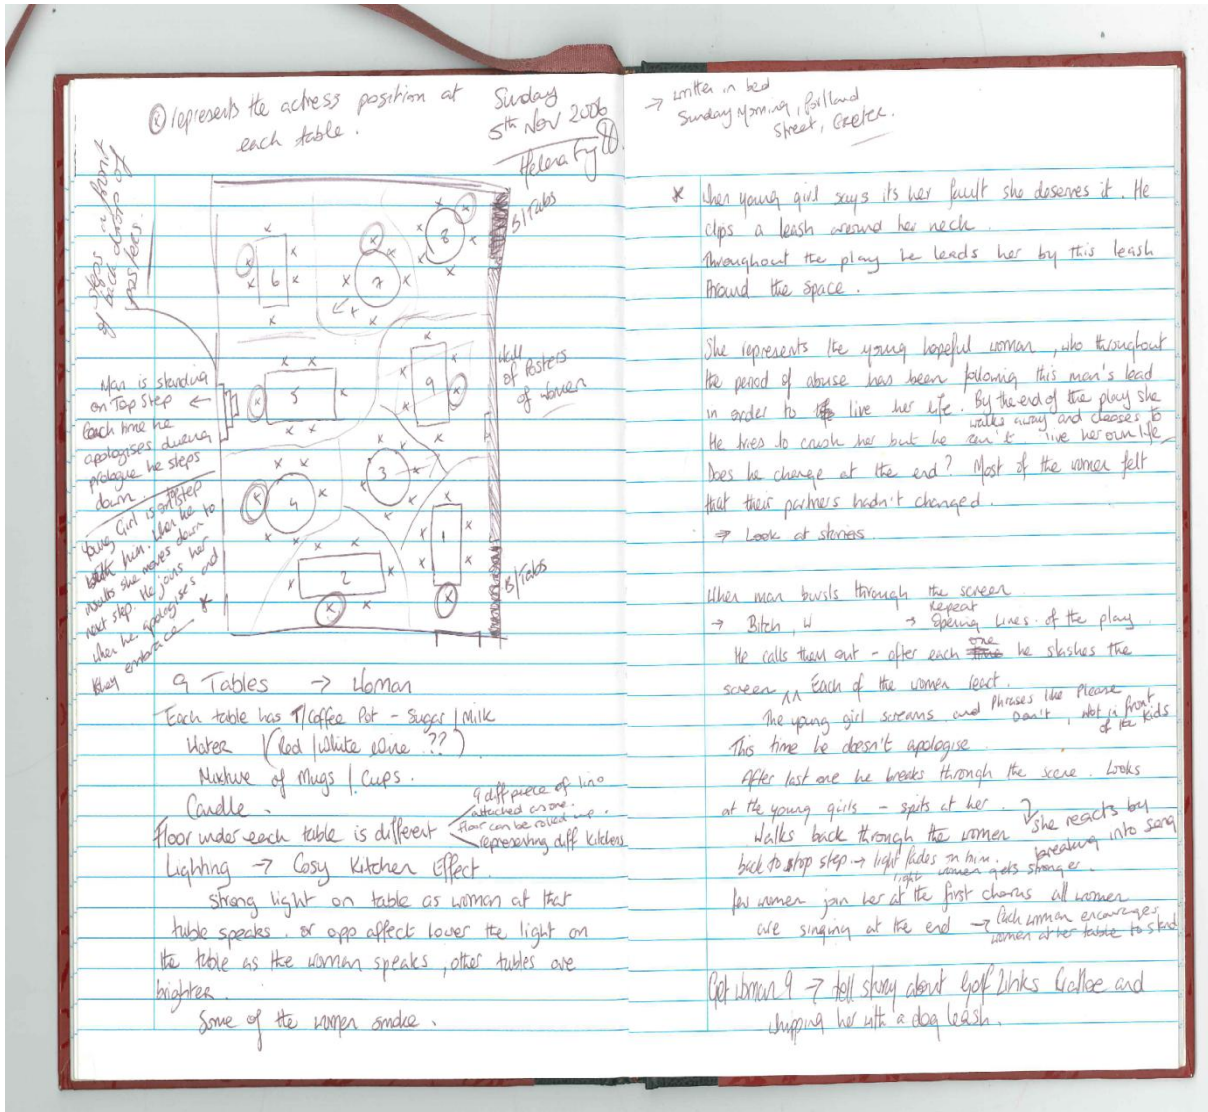 ⓧ represents the actress position at
each table.
Sunday
5th Nov 2006
Helena
steps in front
of back drop of
posters.
Man is standing
on Top Step ←
Each time he
apologises during
prologue he steps
down
Young Girl is on top step
with him. When he
insults she moves down to
next step. He joins her
when he apologises and
they embrace *
B/Tabs
Wall
of Posters
of women
B/Tabs
6
7
8
5
9
4
3
2
1
9 Tables → Woman
Each table has T/Coffee Pot - Sugar / Milk
Water (Red / White wine ??)
Mixture of Mugs / Cups.
Candle.
9 diff piece of lino
attached as one.
Floor can be rolled up.
Floor under each table is different
representing diff kitchens
Lighting → Cosy Kitchen Effect.
Strong light on table as woman at that
table speaks. or opp affect lower the light on
the table as the woman speaks, other tables are
brighter.
Some of the women smoke.
→ written in bed
Sunday Morning, Portland
Street, Exeter.
* When young girl says its her fault she deserves it. He
clips a leash around her neck.
Throughout the play he leads her by this leash
Around the space.
She represents the young hopeful woman, who throughout
the period of abuse has been following this man's lead
in order to live her life. By the end of the play she
walks away and chooses to
live her own life
He tries to crush her but he can't.
Does he change at the end? Most of the women felt
that their partners hadn't changed.
→ Look at stories.
When man bursts through the screen
→ Bitch, W → Repeat Opening Lines of the play
He calls them out - after each one he slashes the
screen ^^ Each of the women react.
The young girl screams and Phrases like Please
Don't, Not in front
of the kids
This time he doesn't apologise
After last one he breaks through the scene. Looks
at the young girls - spits at her. → she reacts by
breaking into song
Walks back through the women
back to top step → light fades on him.
light women gets stronger.
few women join her at the first chorus all women
are singing at the end → Each woman encourages
women at her table to stand
Get woman 9 → tell story about Golf Links and
whipping her with a dog leash.